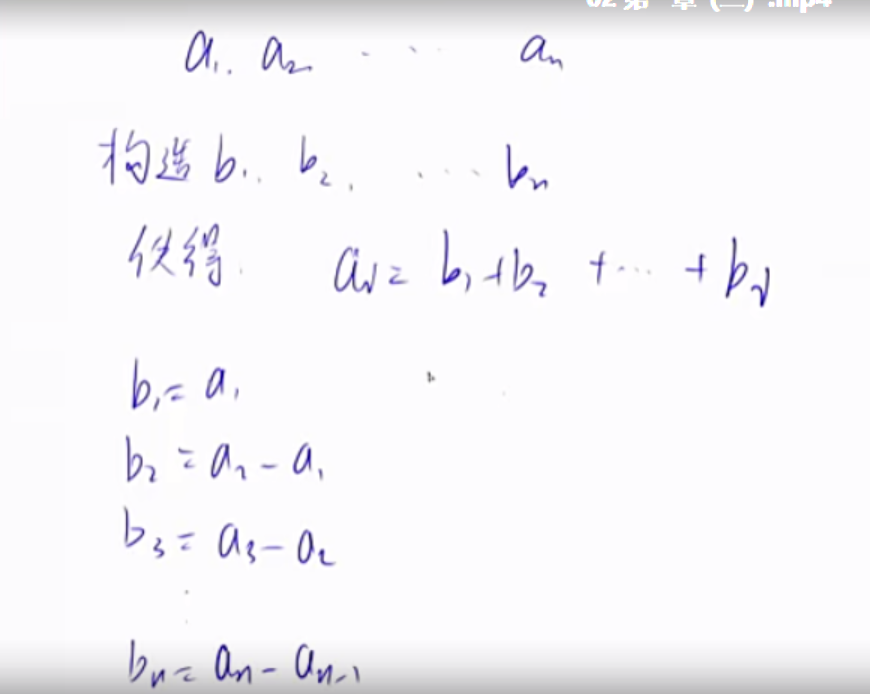 02 第一章 (二) .mp4
a₁. a₂ ... aₙ
构造 b₁. b₂, ... bₙ
使得. aᵢ = b₁ + b₂ + ... + bᵢ
b₁ = a₁
b₂ = a₂ - a₁
b₃ = a₃ - a₂
⋮
bₙ = aₙ - aₙ₋₁